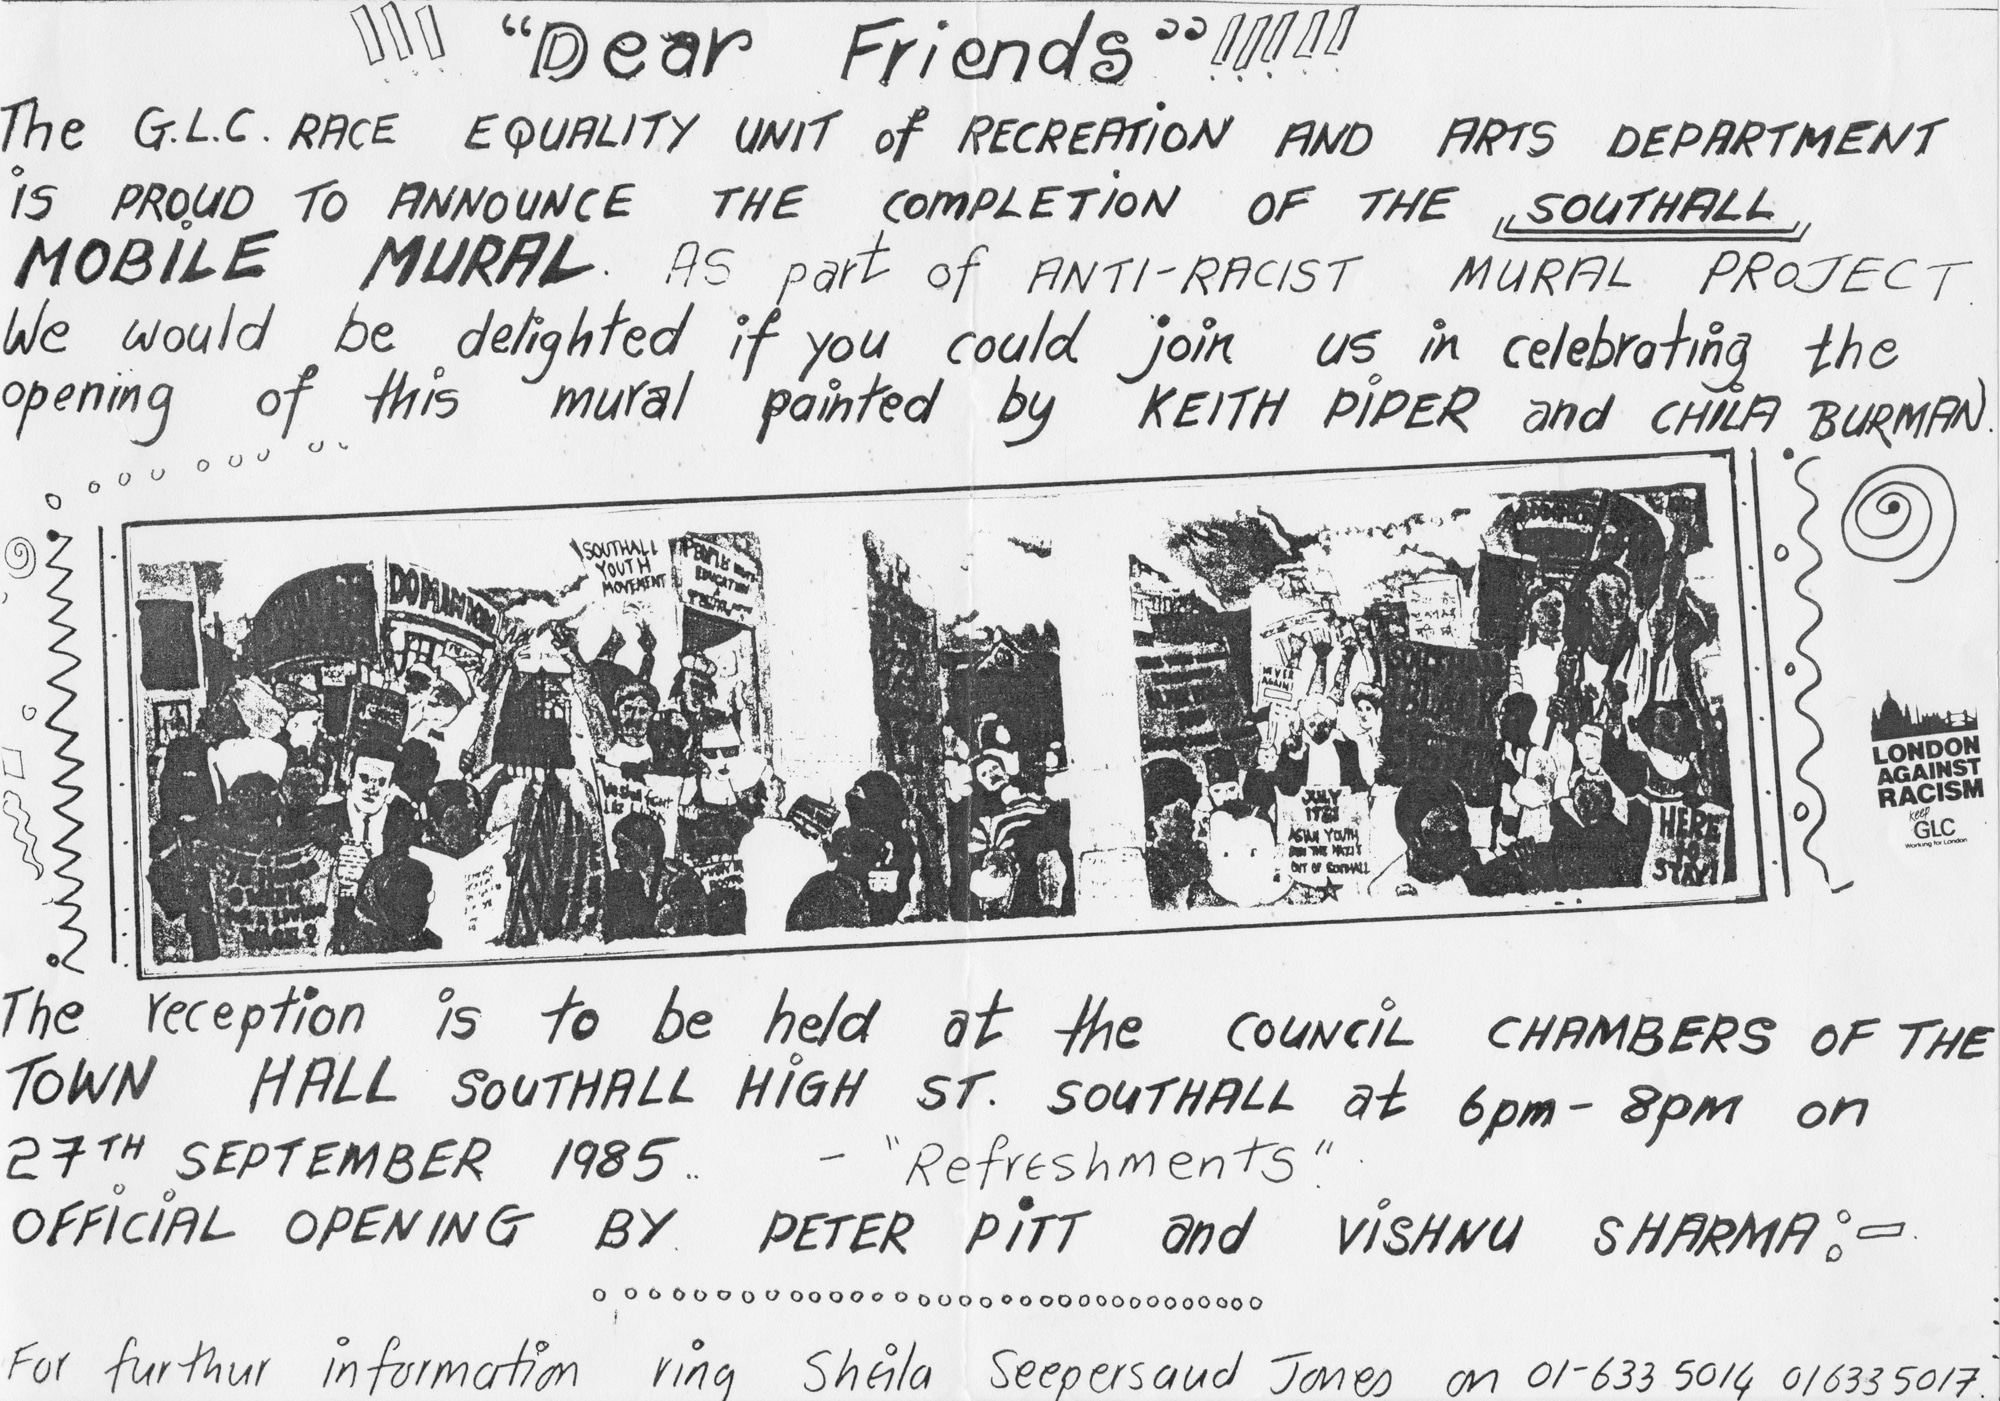 !!! "Dear Friends" !!!!!!
The G.L.C. RACE EQUALITY UNIT of RECREATION AND ARTS DEPARTMENT
is PROUD TO ANNOUNCE THE COMPLETION OF THE SOUTHALL
MOBILE MURAL. AS part of ANTI-RACIST MURAL PROJECT.
We would be delighted if you could join us in celebrating the
opening of this mural painted by KEITH PIPER and CHILA BURMAN.
DOMINION
SOUTHALL
YOUTH
MOVEMENT
EDUCATION
NEVER
AGAIN!
SOUTHALL
BLACK
JULY
1981
ASIAN YOUTH
THE NAZIS
OUT OF SOUTHALL
HERE
TO
STAY!
LONDON
AGAINST
RACISM
Keep
GLC
Working for London
The reception is to be held at the COUNCIL CHAMBERS OF THE
TOWN HALL SOUTHALL HIGH ST. SOUTHALL at 6pm - 8pm on
27TH SEPTEMBER 1985.. - "Refreshments".
OFFICIAL OPENING BY PETER PITT and VISHNU SHARMA:-
For furthur information ring Sheila Seepersaud Jones on 01-633 5014 01 633 5017.